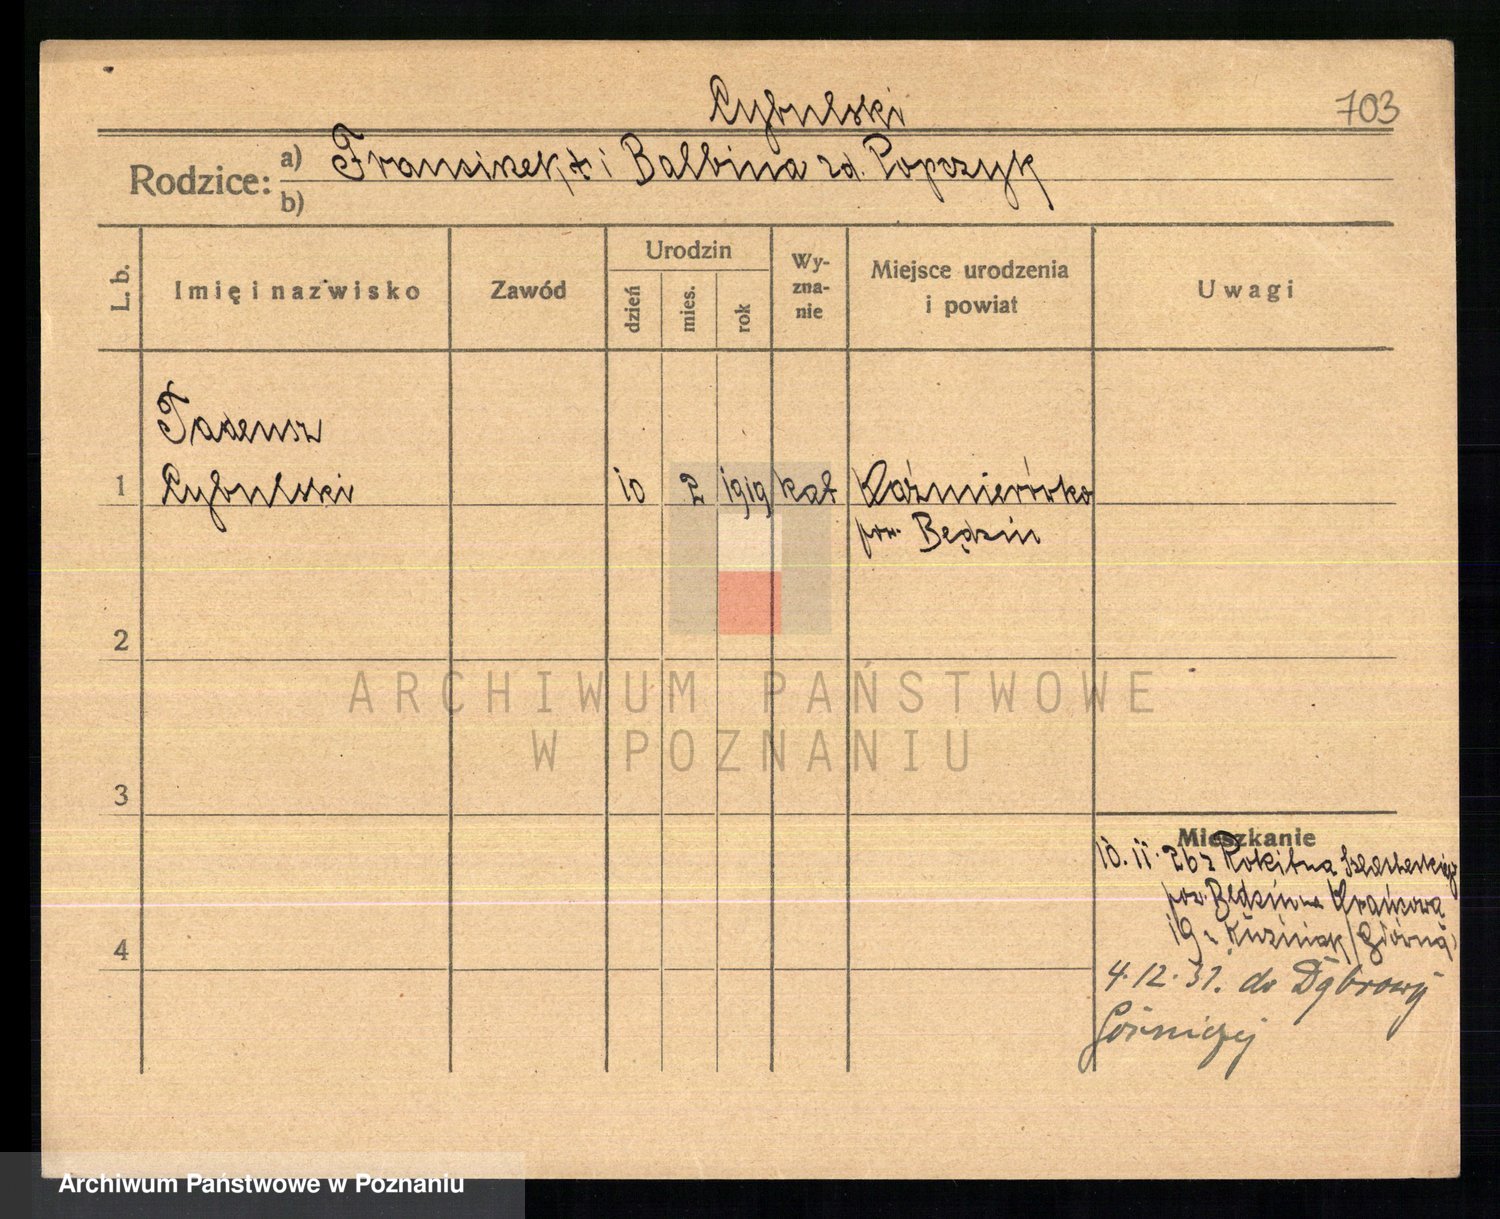 Cybulski
703
Rodzice: a) Franciszek + i Balbina zd. Popczyk
b)
L. b.
Imię i nazwisko
Zawód
Urodzin
dzień
mies.
rok
Wy-
zna-
nie
Miejsce urodzenia
i powiat
Uwagi
Tadeusz
1 Cybulski 10 2 1919 kat Kaźmierówka
pow. Będzin
2
3
4
Mieszkanie
10. 11. 26 z Rokitna Szlacheckiego
pow. Będzin na
19
4.12.31. do Dąbrowy
Górniczej
ARCHIWUM PAŃSTWOWE
W POZNANIU
Archiwum Państwowe w Poznaniu